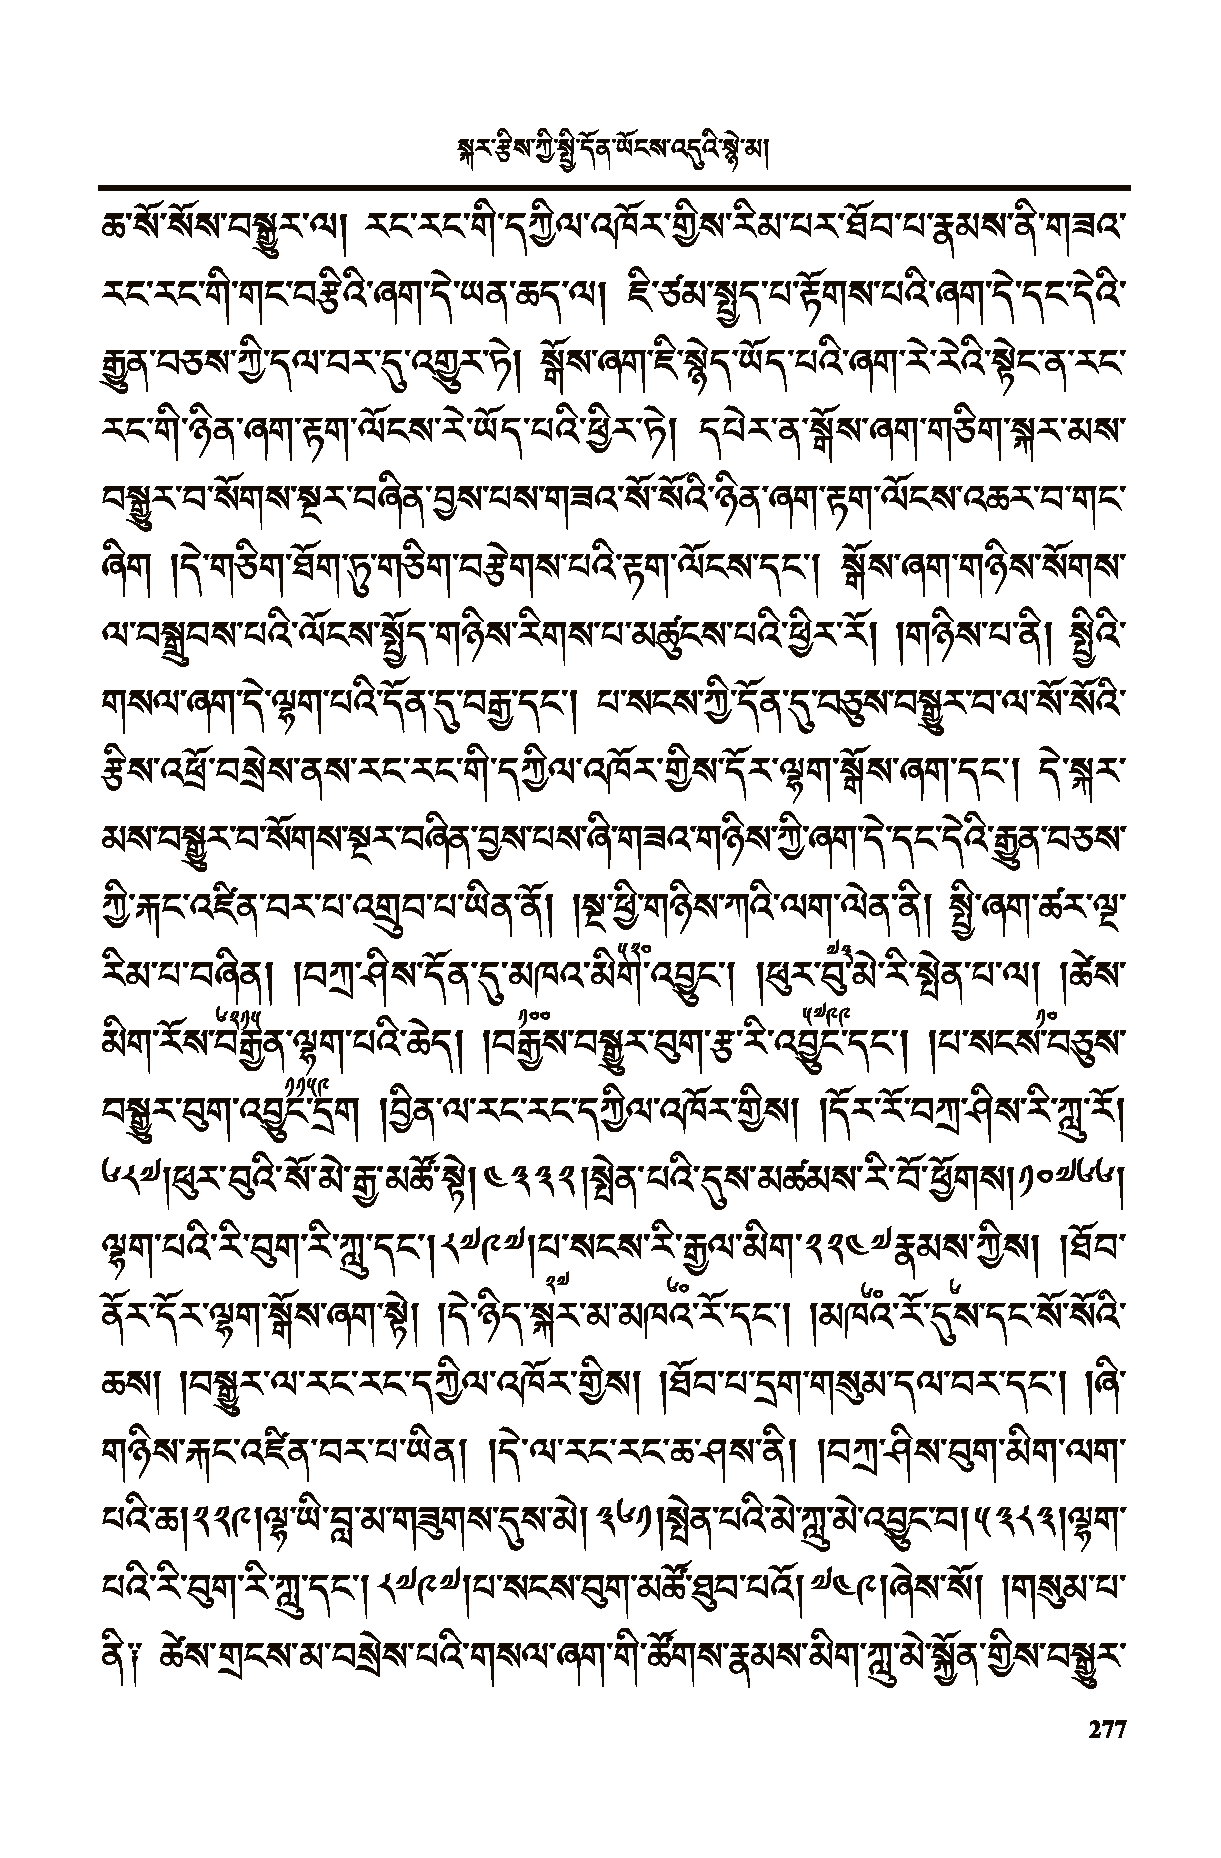 སྐར་རྩིས་ཀྱི་སྤྱི་དོན་ཡོངས་འདུའི་སྙེ་མ།
ཆ་སོ་སོས་བསྒྱུར་ལ། རང་རང་གི་དཀྱིལ་འཁོར་གྱིས་རིམ་པར་ཐོབ་པ་རྣམས་ནི་གཟའ་
རང་རང་གི་གང་བརྩིའི་ཞག་དེ་ཡན་ཆད་ལ། ཇི་ཙམ་སྤྱད་པ་རྟོགས་པའི་ཞག་དེ་དང་དེའི་
རྒྱུན་བཅས་ཀྱི་དལ་བར་དུ་འགྱུར་ཏེ། སྒོས་ཞག་ཇི་སྙེད་ཡོད་པའི་ཞག་རེ་རེའི་སྟེང་ན་རང་
རང་གི་ཉིན་ཞག་རྟག་ལོངས་རེ་ཡོད་པའི་ཕྱིར་ཏེ། དཔེར་ན་སྒོས་ཞག་གཅིག་སྐར་མས་
བསྒྱུར་བ་སོགས་སྔར་བཞིན་བྱས་པས་གཟའ་སོ་སོའི་ཉིན་ཞག་རྟག་ལོངས་འཆར་བ་གང་
ཞིག །དེ་གཅིག་ཐོག་ཏུ་གཅིག་བརྩེགས་པའི་རྟག་ལོངས་དང༌། སྒོས་ཞག་གཉིས་སོགས་
ལ་བསྒྲུབས་པའི་ལོངས་སྤྱོད་གཉིས་རིགས་པ་མཚུངས་པའི་ཕྱིར་རོ། །གཉིས་པ་ནི། སྤྱིའི་
གསལ་ཞག་དེ་ལྷག་པའི་དོན་དུ་བརྒྱ་དང༌། པ་སངས་ཀྱི་དོན་དུ་བཅུས་བསྒྱུར་བ་ལ་སོ་སོའི་
རྩིས་འཕྲོ་བསྲེས་ནས་རང་རང་གི་དཀྱིལ་འཁོར་གྱིས་དོར་ལྷག་སྒོས་ཞག་དང༌། དེ་སྐར་
མས་བསྒྱུར་བ་སོགས་སྔར་བཞིན་བྱས་པས་ཞི་གཟའ་གཉིས་ཀྱི་ཞག་དེ་དང་དེའི་རྒྱུན་བཅས་
ཀྱི་རྐང་འཛིན་བར་པ་འགྲུབ་པ་ཡིན་ནོ། །སྔ་ཕྱི་གཉིས་ཀའི་ལག་ལེན་ནི། སྤྱི་ཞག་ཚར་ལྔ་
རིམ་པ་བཞིན། །བཀྲ་ཤིས་དོན་དུ་མཁའ་མིག་༥༢༠་འབྱུང༌། །ཕུར་བུ་༧༣་མེ་རི་སྤེན་པ་ལ། །ཚེས་
མིག་རོས་༦༢༡༥་བརྒྱན་ལྷག་པའི་ཆེད། །བརྒྱས་༡༠༠་བསྒྱུར་བུག་རྩ་རི་འབྱུང་༥༧༩༩་དང༌། །པ་སངས་༡༠་བཅུས་
བསྒྱུར་བུག་འབྱུང་༡༡༥༩་དྲག །བྱིན་ལ་རང་རང་དཀྱིལ་འཁོར་གྱིས། །དོར་རོ་བཀྲ་ཤིས་རི་ཀླུ་རོ།
༦༨༧།ཕུར་བུའི་སོ་མེ་རྒྱ་མཚོ་སྟེ། ༤༣༣༢།སྤེན་པའི་དུས་མཚམས་རི་བོ་ཕྱོགས།༡༠༧༦༦།
ལྷག་པའི་རི་བུག་རི་ཀླུ་དང༌།༨༧༩༧།པ་སངས་རི་རྒྱལ་མིག་༢༢༤༧་རྣམས་ཀྱིས། །ཐོབ་
ནོར་དོར་ལྷག་སྒོས་ཞག་སྟེ། །དེ་ཉིད་སྐར་༢༧་མ་མཁའི་༦༠་རོ་དང༌། །མཁའི་༦༠་རོ་དུས་༦་དང་སོ་སོའི་
ཆས། །བསྒྱུར་ལ་རང་རང་དཀྱིལ་འཁོར་གྱིས། །ཐོབ་པ་དྲག་གསུམ་དལ་བར་དང༌། །ཞི་
གཉིས་རྐང་འཛིན་བར་པ་ཡིན། །དེ་ལ་རང་རང་ཆ་ཤས་ནི། །བཀྲ་ཤིས་བུག་མིག་ལག་
པའི་ཆ།༢༢༩།ལྷ་ཡི་བླ་མ་གཟུགས་དུས་མེ། ༣༦༡།སྤེན་པའི་མེ་ཀླུ་མེ་འབྱུང་བ།༥༣༨༣།ལྷག་
པའི་རི་བུག་རི་ཀླུ་དང༌། ༨༧༩༧།པ་སངས་བུག་མཚོ་ཐུབ་པའོ། ༧༤༩།ཞེས་སོ། །གསུམ་པ་
ནི༔ ཚེས་གྲངས་མ་བསྲེས་པའི་གསལ་ཞག་གི་ཚོགས་རྣམས་མིག་ཀླུ་མེ་སྐྱོན་གྱིས་བསྒྱུར་
277